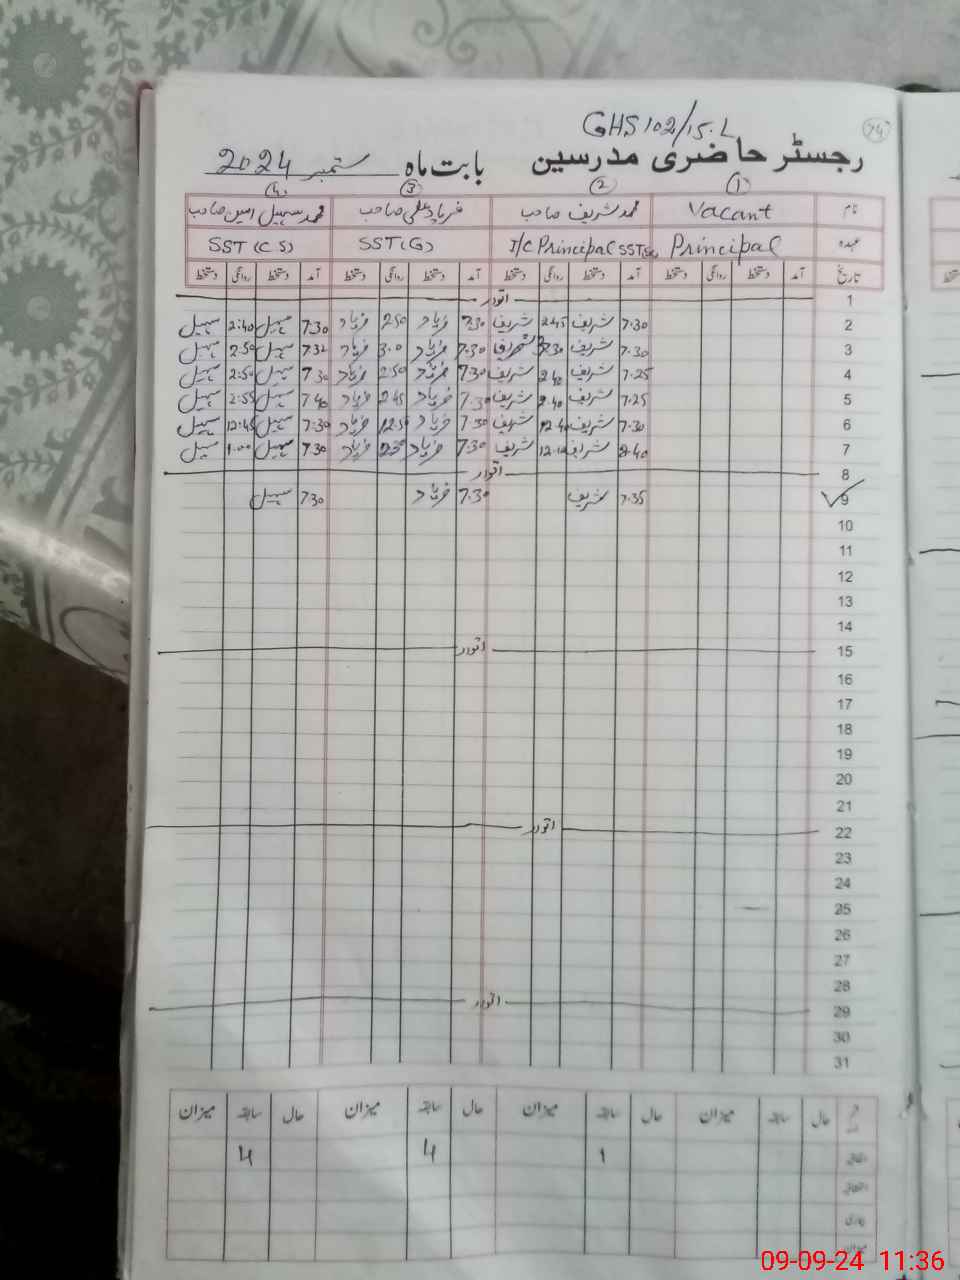 GHS 102/15.L
24
رجسٹر حاضری مدرسین بابت ماہ ستمبر 2024
(1) (2) (3) (4)
نام Vacant محمد شریف صاحب فریاد علی صاحب محمد سہیل امین صاحب
عہدہ Principal I/C Principal SST SST(G) SST(CS)
تاریخ آمد دستخط روانگی دستخط آمد دستخط روانگی دستخط آمد دستخط روانگی دستخط آمد دستخط روانگی دستخط
1 اتوار
2 7.30 شریف 2.45 شریف 7.30 فریاد 2.50 فریاد 7.30 سہیل 2:40 سہیل
3 7.30 شریف شریف 7.30 فریاد 3.0 فریاد 7.32 سہیل 2.50 سہیل
4 7.25 شریف 2.40 شریف 7.30 فریاد 2.50 فریاد 7.30 سہیل 2:50 سہیل
5 7.25 شریف 2.40 شریف 7.30 فریاد 2.45 فریاد 7.40 سہیل 2:55 سہیل
6 7.30 شریف 12.40 شریف 7.30 فریاد 12.50 فریاد 7:30 سہیل 12:45 سہیل
7 شریف شریف 7.30 فریاد فریاد 7.30 سہیل 1.00 سہیل
8 اتوار
9 7.35 شریف 7.30 فریاد 7.30 سہیل
10
11
12
13
14
15 اتوار
16
17
18
19
20
21
22 اتوار
23
24
25
26
27
28
29 اتوار
30
31
حال سابقہ میزان حال سابقہ میزان حال سابقہ میزان حال سابقہ میزان
اتفاقیہ 1 4 4
بیماری
میزان
09-09-24 11:36